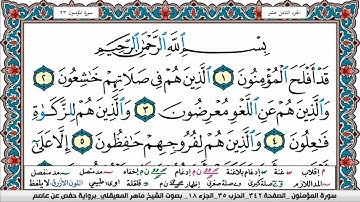 سورة المؤمنون ٢٣
الجزء الثامن عشر
بِسْمِ اللَّهِ الرَّحْمَٰنِ الرَّحِيمِ
قَدْ أَفْلَحَ الْمُؤْمِنُونَ ١ الَّذِينَ هُمْ فِي صَلَاتِهِمْ خَاشِعُونَ ٢
وَالَّذِينَ هُمْ عَنِ اللَّغْوِ مُعْرِضُونَ ٣ وَالَّذِينَ هُمْ لِلزَّكَوٰةِ
فَاعِلُونَ ٤ وَالَّذِينَ هُمْ لِفُرُوجِهِمْ حَافِظُونَ ٥ إِلَّا عَلَىٰ
سورة المؤمنون _ الصفحة ٣٤٢ _ الحزب ٣٥ _ الجزء ١٨ _ بصوت الشيخ ماهر المعيقلي _ برواية حفص عن عاصم